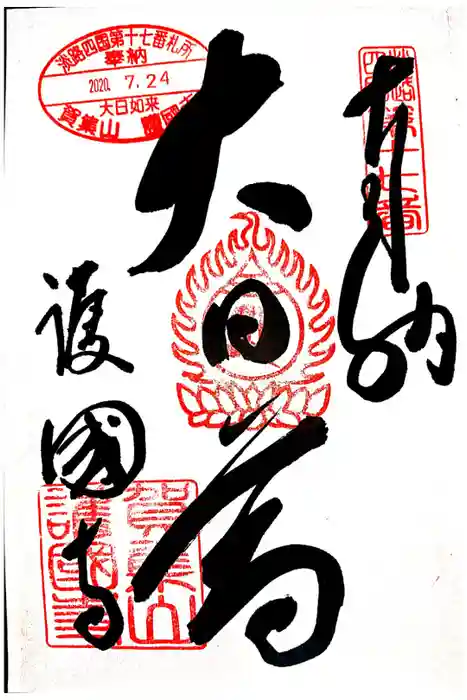 奉納
淡路四国第十七番
大日尊
護國寺
淡路四国第十七番札所
奉納
2020. 7.24
大日如来
賀集山 護國寺
賀集山
護國寺